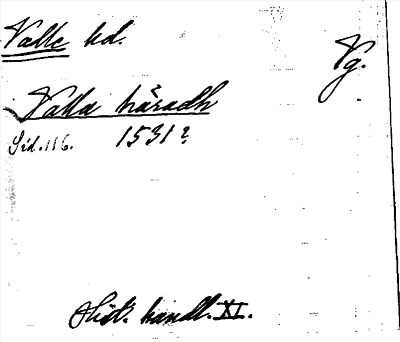 Valle hd.
Vg.
Valla häradh
Sid. 116. 1531?
Hist. handl. XI.